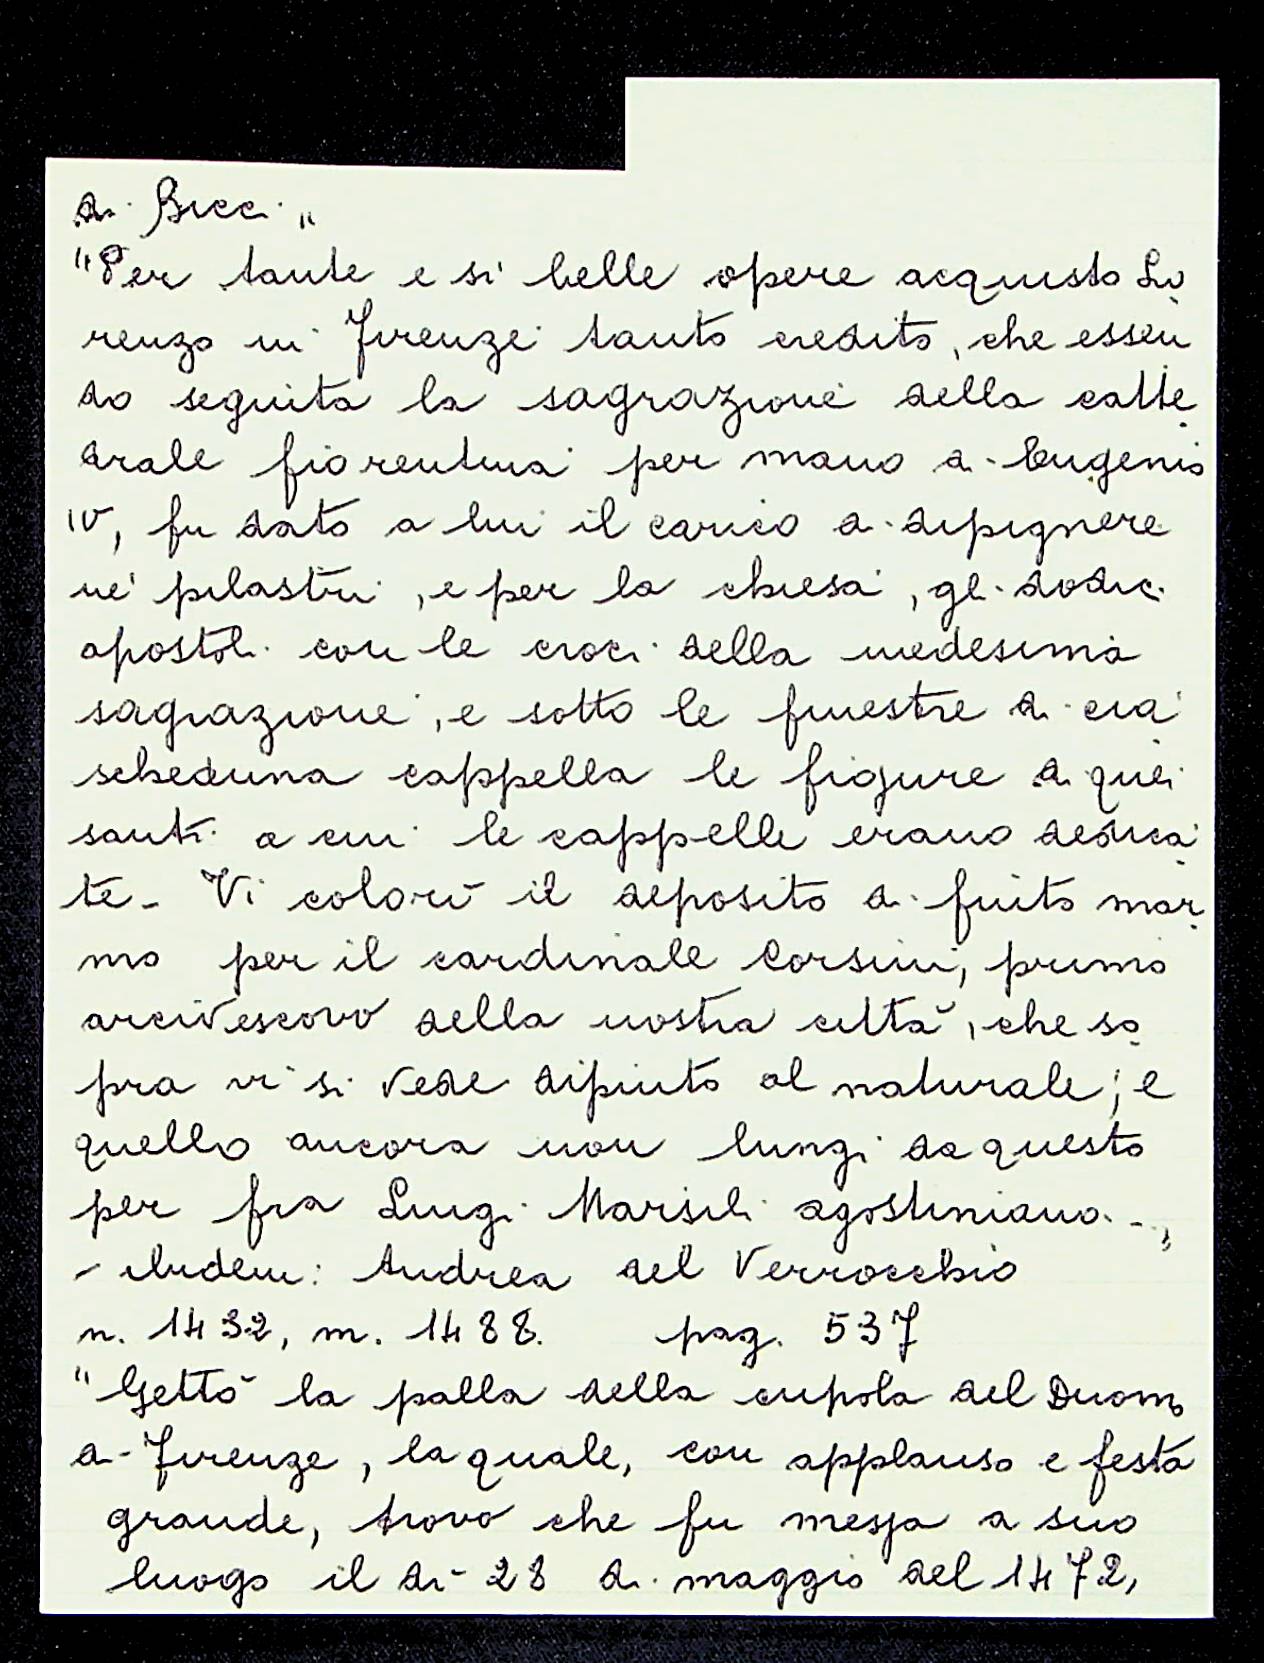 di Bicci."
"Per tante e sì belle opere acquisto Lo
renzo in Firenze tanto credito, che essen
do seguita la sagrazione della catte
drale fiorentina per mano di Eugenio
IV, fu dato a lui il carico di dipignere
ne' pilastri, e per la chiesa, gli dodici
apostoli con le croci della medesima
sagrazione, e sotto le finestre di cia
scheduna cappella le figure di quei
santi a cui le cappelle erano dedica
te - Vi colorì il deposito di finto mar
mo per il cardinale Corsini, primo
arcivescovo della nostra città, che so
pra vi si vede dipinto al naturale; e
quello ancora non lungi da questo
per fra Luigi Marsili agostiniano. -"
- Andrea del Verrocchio
n. 1432, m. 1488. pag. 537
"Gettò la palla della cupola del Duomo
di Firenze, la quale, con applauso e festa
grande, trovo che fu messa a suo
luogo il dì 28 di maggio del 1472,